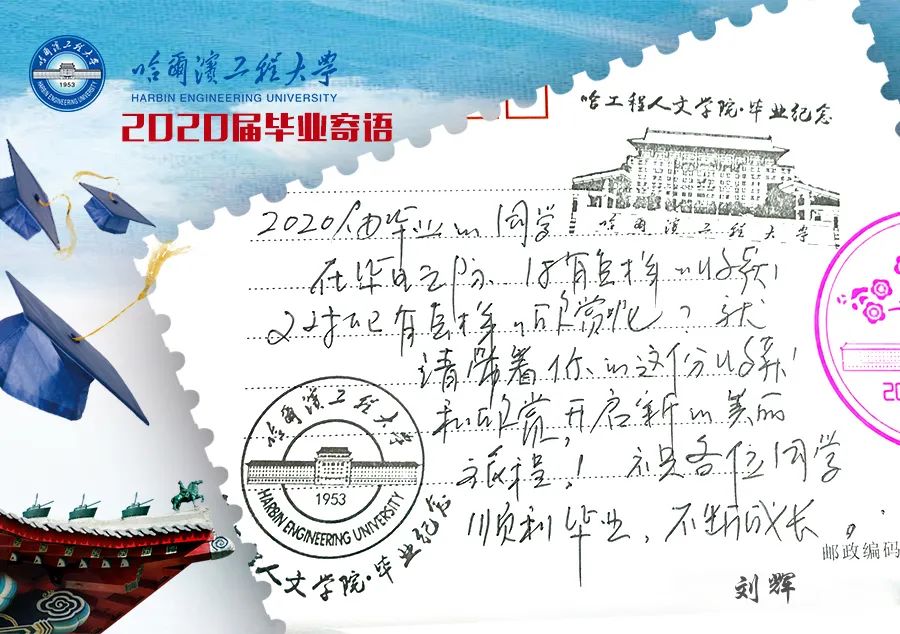 哈爾濱工程大學
HARBIN ENGINEERING UNIVERSITY
哈爾濱工程大學
HARBIN ENGINEERING UNIVERSITY
1953
2020届毕业寄语
哈工程人文学院·毕业纪念
哈爾濱工程大學
2020届毕业的同学
在毕业之际,你有怎样的收获
对自己有怎样的欣赏呢?就
请带着你的这份收获
和欣赏,开启新的美丽
旅程!祝各位同学
顺利毕业,不断成长。
哈爾濱工程大學
1953
HARBIN ENGINEERING UNIVERSITY
人文学院·毕业纪念
20
邮政编码
刘辉